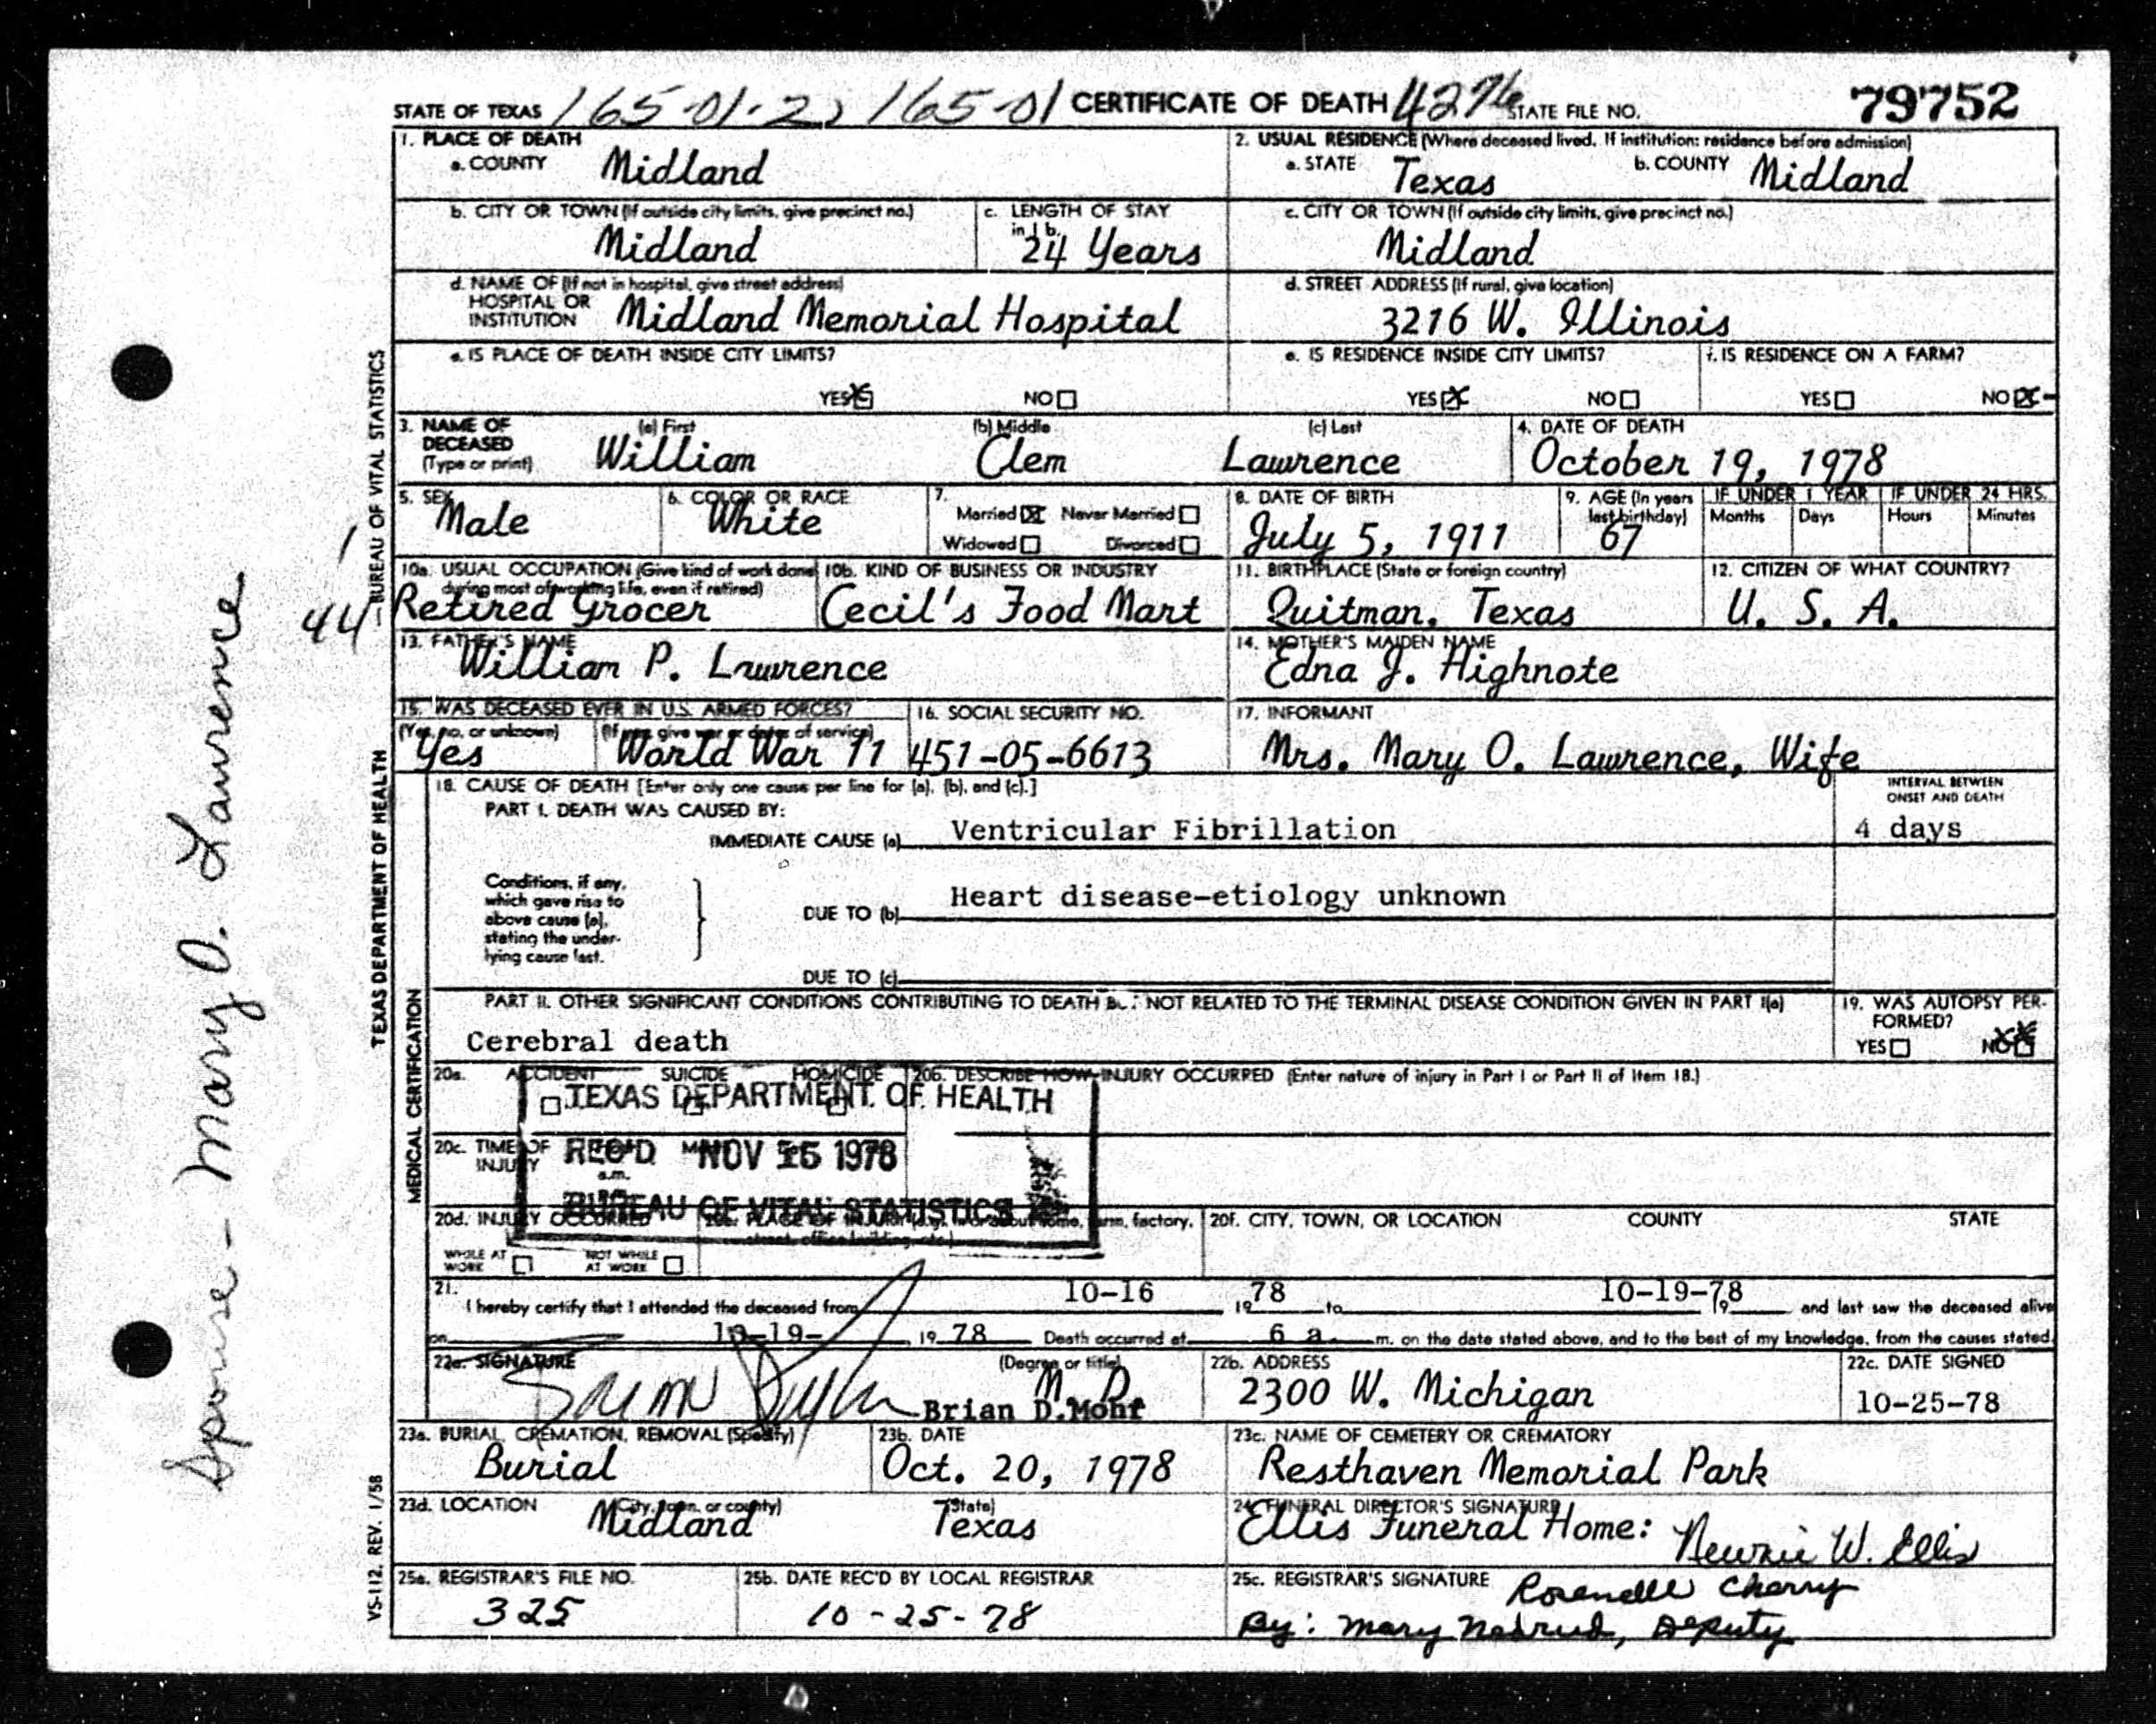 STATE OF TEXAS 165-01-2, 165-01 CERTIFICATE OF DEATH 4276 STATE FILE NO. 79752
1. PLACE OF DEATH
a. COUNTY Midland
2. USUAL RESIDENCE (Where deceased lived. If institution: residence before admission)
a. STATE Texas b. COUNTY Midland
b. CITY OR TOWN (If outside city limits, give precinct no.)
Midland
c. LENGTH OF STAY
in 1 b.
24 Years
c. CITY OR TOWN (If outside city limits, give precinct no.)
Midland
d. NAME OF (If not in hospital, give street address)
HOSPITAL OR
INSTITUTION Midland Memorial Hospital
d. STREET ADDRESS (If rural, give location)
3216 W. Illinois
e. IS PLACE OF DEATH INSIDE CITY LIMITS?
YES NO
e. IS RESIDENCE INSIDE CITY LIMITS?
YES NO
f. IS RESIDENCE ON A FARM?
YES NO
3. NAME OF
DECEASED
(Type or print)
(a) First (b) Middle (c) Last
William Clem Lawrence
4. DATE OF DEATH
October 19, 1978
5. SEX
Male
6. COLOR OR RACE
White
7.
Married Never Married
Widowed Divorced
8. DATE OF BIRTH
July 5, 1911
9. AGE (In years
last birthday)
67
IF UNDER 1 YEAR IF UNDER 24 HRS.
Months Days Hours Minutes
10a. USUAL OCCUPATION (Give kind of work done
during most of working life, even if retired)
Retired Grocer
10b. KIND OF BUSINESS OR INDUSTRY
Cecil's Food Mart
11. BIRTHPLACE (State or foreign country)
Quitman, Texas
12. CITIZEN OF WHAT COUNTRY?
U. S. A.
13. FATHER'S NAME
William P. Lawrence
14. MOTHER'S MAIDEN NAME
Edna J. Highnote
15. WAS DECEASED EVER IN U.S. ARMED FORCES?
(Yes, no, or unknown) (If yes, give war or dates of service)
Yes World War 11
16. SOCIAL SECURITY NO.
451-05-6613
17. INFORMANT
Mrs. Mary O. Lawrence, Wife
18. CAUSE OF DEATH [Enter only one cause per line for (a), (b), and (c).]
PART I. DEATH WAS CAUSED BY:
IMMEDIATE CAUSE (a) Ventricular Fibrillation
INTERVAL BETWEEN
ONSET AND DEATH
4 days
Conditions, if any,
which gave rise to
above cause (a),
stating the under-
lying cause last.
DUE TO (b) Heart disease-etiology unknown
DUE TO (c)
PART II. OTHER SIGNIFICANT CONDITIONS CONTRIBUTING TO DEATH NOT RELATED TO THE TERMINAL DISEASE CONDITION GIVEN IN PART I(a)
Cerebral death
19. WAS AUTOPSY PER-
FORMED?
YES NO
20a. ACCIDENT SUICIDE HOMICIDE
20b. DESCRIBE HOW INJURY OCCURRED (Enter nature of injury in Part I or Part II of Item 18.)
TEXAS DEPARTMENT OF HEALTH
REC'D NOV 1978
BUREAU OF VITAL STATISTICS
20c. TIME OF
INJURY
a.m.
20d. INJURY OCCURRED
WHILE AT
WORK
NOT WHILE
AT WORK
PLACE OF INJURY home, farm, factory,
street, office building, etc.)
20f. CITY, TOWN, OR LOCATION COUNTY STATE
21.
I hereby certify that I attended the deceased from 10-16 19 78 to 10-19-78 19 and last saw the deceased alive
on 10-19- 19 78 Death occurred at 6 a m. on the date stated above, and to the best of my knowledge, from the causes stated.
22a. SIGNATURE (Degree or title)
M. D.
Brian D. Mohr
22b. ADDRESS
2300 W. Michigan
22c. DATE SIGNED
10-25-78
23a. BURIAL, CREMATION, REMOVAL (Specify)
Burial
23b. DATE
Oct. 20, 1978
23c. NAME OF CEMETERY OR CREMATORY
Resthaven Memorial Park
23d. LOCATION (City, town, or county) (State)
Midland Texas
24. FUNERAL DIRECTOR'S SIGNATURE
Ellis Funeral Home: Newnie W. Ellis
25a. REGISTRAR'S FILE NO.
325
25b. DATE REC'D BY LOCAL REGISTRAR
10-25-78
25c. REGISTRAR'S SIGNATURE Rosenelle Cherry
By: Mary Deputy
Spouse - Mary O. Lawrence
44 1
BUREAU OF VITAL STATISTICS
TEXAS DEPARTMENT OF HEALTH
MEDICAL CERTIFICATION
VS-112. REV. 1/58